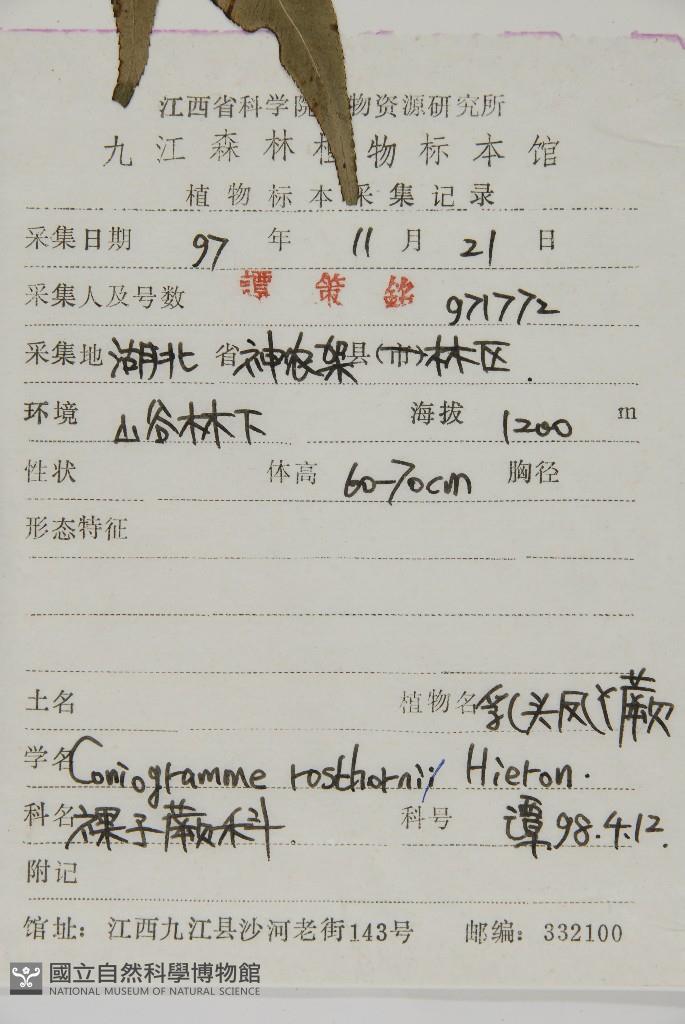 江西省科学院 物资源研究所
九江森林植物标本馆
植物标本采集记录
采集日期 97 年 11 月 21 日
采集人及号数 譚策銘 971772
采集地 湖北 省 神农架 县(市) 林区.
环境 山谷林下 海拔 1200 m
性状 体高 60-70cm 胸径
形态特征
土名 植物名 乳头凤丫蕨
学名 Coniogramme rosthornii Hieron.
科名 裸子蕨科. 科号 谭 98.4.12.
附记
馆址: 江西九江县沙河老街143号 邮编: 332100
國立自然科學博物館
NATIONAL MUSEUM OF NATURAL SCIENCE